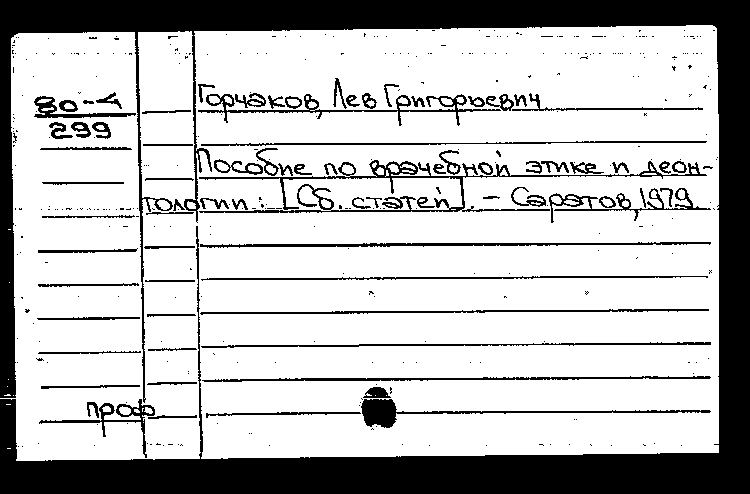 80-4
299
Горчаков, Лев Григорьевич
Пособие по врачебной этике и деон-
тологии: [Сб. статей]. - Саратов, 1979
проф